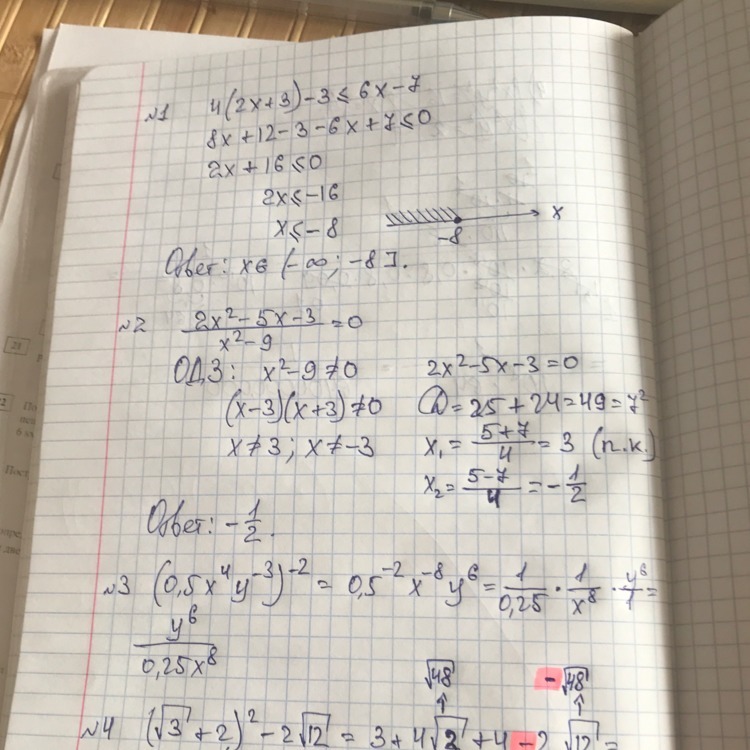 №1 4(2x+3)-3≤6x-7
8x+12-3-6x+7≤0
2x+16≤0
2x≤-16
x≤-8
x
-8
Ответ: x∈(-∞; -8].
№2 (2x²-5x-3)/(x²-9)=0
ОДЗ: x²-9≠0
(x-3)(x+3)≠0
x≠3; x≠-3
2x²-5x-3=0
D=25+24=49=7²
x₁=(5+7)/4=3 (п.к.)
x₂=(5-7)/4=-1/2
Ответ: -1/2.
№3 (0,5x⁴y⁻³)⁻²=0,5⁻²x⁻⁸y⁶=1/0,25·1/x⁸·y⁶/1=
y⁶/0,25x⁸
√48 -√48
↑ ↑
№4 (√3+2)²-2√12=3+4√2+4-2√12=